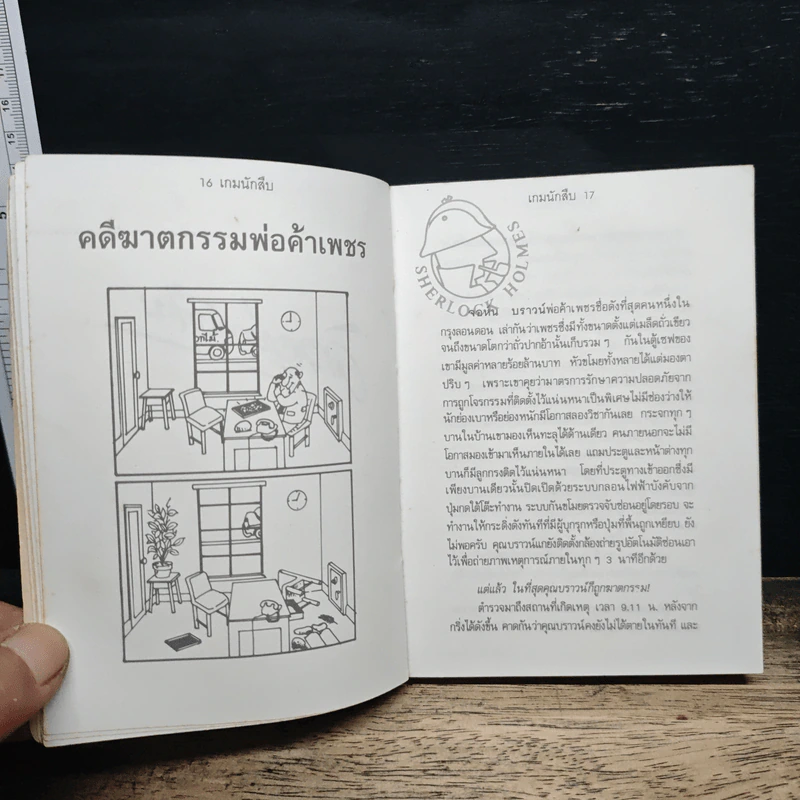 16 เกมนักสืบ
คดีฆาตกรรมพ่อค้าเพชร
เกมนักสืบ 17
SHERLOCK HOLMES
จอห์น บราวน์พ่อค้าเพชรชื่อดังที่สุดคนหนึ่งใน
กรุงลอนดอน เล่ากันว่าเพชรซึ่งมีทั้งขนาดตั้งแต่เมล็ดถั่วเขียว
จนถึงขนาดโตกว่าถั่วปากอ้านั้นเก็บรวมๆ กันในตู้เซฟของ
เขามีมูลค่าหลายร้อยล้านบาท หัวขโมยทั้งหลายได้แต่มองตา
ปริบๆ เพราะเขาคุยว่ามาตรการรักษาความปลอดภัยจาก
การถูกโจรกรรมที่ติดตั้งไว้แน่นหนาเป็นพิเศษไม่มีช่องว่างให้
นักย่องเบาหรือย่องหนักมีโอกาสลองวิชากันเลย กระจกทุกๆ
บานในบ้านเขามองเห็นทะลุได้ด้านเดียว คนภายนอกจะไม่มี
โอกาสมองเข้ามาเห็นภายในได้เลย แถมประตูและหน้าต่างทุก
บานก็มีลูกกรงติดไว้แน่นหนา โดยที่ประตูทางเข้าออกซึ่งมี
เพียงบานเดียวนั้นปิดเปิดด้วยระบบกลอนไฟฟ้าบังคับจาก
ปุ่มกดใต้โต๊ะทำงาน ระบบกันขโมยตรวจจับซ่อนอยู่โดยรอบ จะ
ทำงานให้กระดิ่งดังทันทีที่มีผู้บุกรุกหรือปุ่มที่พื้นถูกเหยียบ ยัง
ไม่พอครับ คุณบราวน์แกยังติดตั้งกล้องถ่ายรูปอัตโนมัติซ่อนเอา
ไว้เพื่อถ่ายภาพเหตุการณ์ภายในทุกๆ 3 นาทีอีกด้วย
แต่แล้ว ในที่สุดคุณบราวน์ก็ถูกฆาตกรรม!
ตำรวจมาถึงสถานที่เกิดเหตุ เวลา 9.11 น. หลังจาก
กริ่งได้ดังขึ้น คาดกันว่าคุณบราวน์คงยังไม่ได้ตายในทันที และ
15
16
17